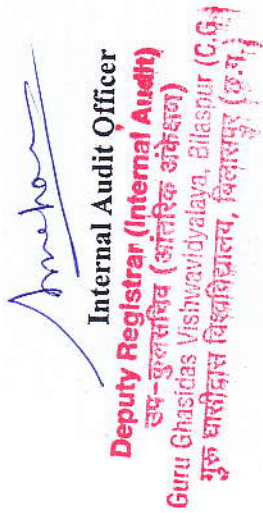 Internal Audit Officer
Deputy Registrar (Internal Audit)
उप-कुलसचिव (आंतरिक अंकेक्षण)
Guru Ghasidas Vishwavidyalaya, Bilaspur (C.G.)
गुरू घासीदास विश्वविद्यालय, बिलासपुर (छ.ग.)